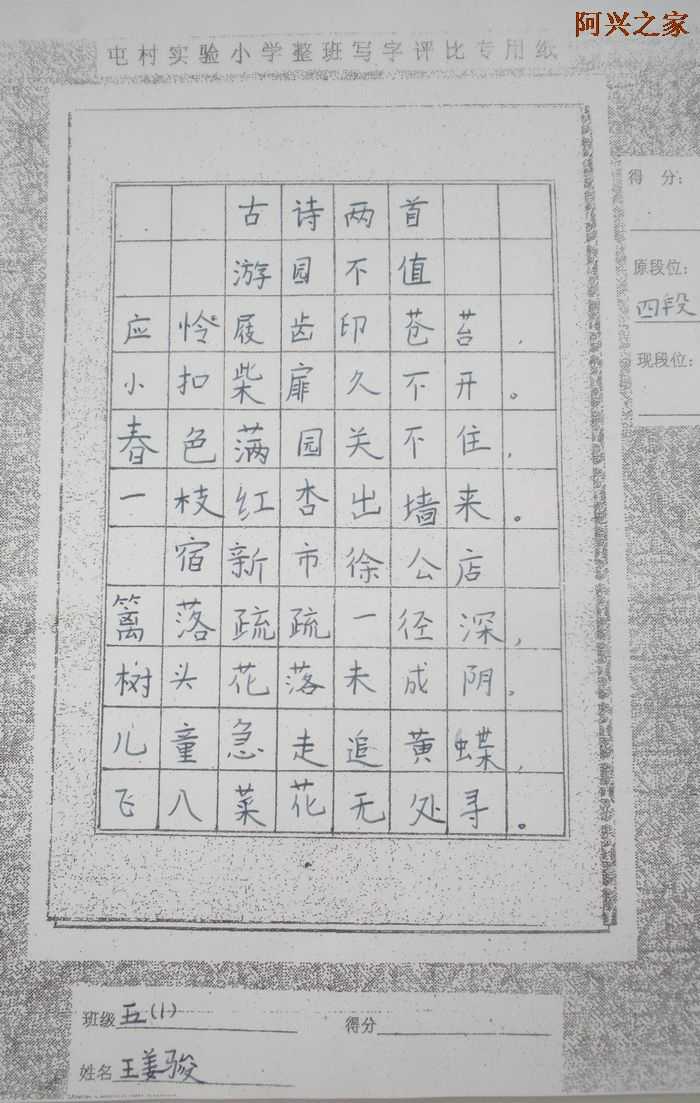 阿兴之家
屯村实验小学整班写字评比专用纸
得 分:
原段位:
四段
现段位:
古诗两首
游园不值
应怜屐齿印苍苔,
小扣柴扉久不开。
春色满园关不住,
一枝红杏出墙来。
宿新市徐公店
篱落疏疏一径深,
树头花落未成阴,
儿童急走追黄蝶,
飞入菜花无处寻。
班级 五(1) 得分
姓名 王姜骏